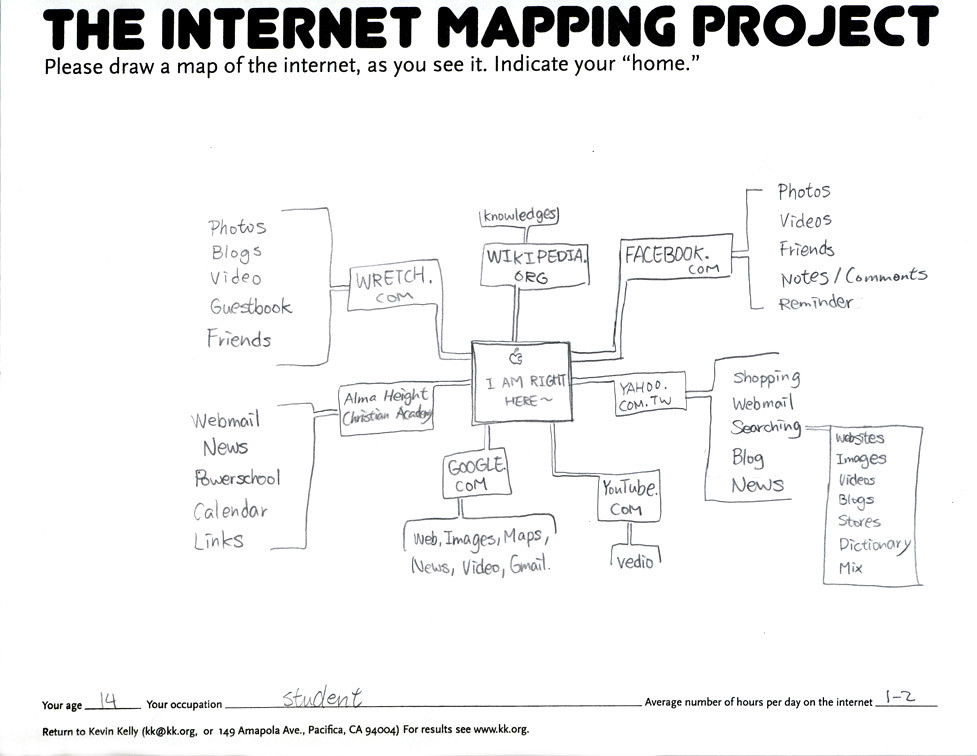 THE INTERNET MAPPING PROJECT
Please draw a map of the internet, as you see it. Indicate your “home.”
Photos
Blogs
Video
Guestbook
Friends
WRETCH.
COM
knowledges
WIKIPEDIA.
ORG
FACEBOOK.
COM
Photos
Videos
Friends
Notes/Comments
Reminder
I AM RIGHT
HERE~
Alma Height
Christian Academy
Webmail
News
Powerschool
Calendar
Links
GOOGLE.
COM
Web, Images, Maps,
News, Video, Gmail.
YouTube.
COM
vedio
YAHOO.
COM.TW
Shopping
Webmail
Searching
Blog
News
Websites
Images
Videos
Blogs
Stores
Dictionary
Mix
Your age 14 Your occupation student Average number of hours per day on the internet 1-2
Return to Kevin Kelly (kk@kk.org, or 149 Amapola Ave., Pacifica, CA 94004) For results see www.kk.org.